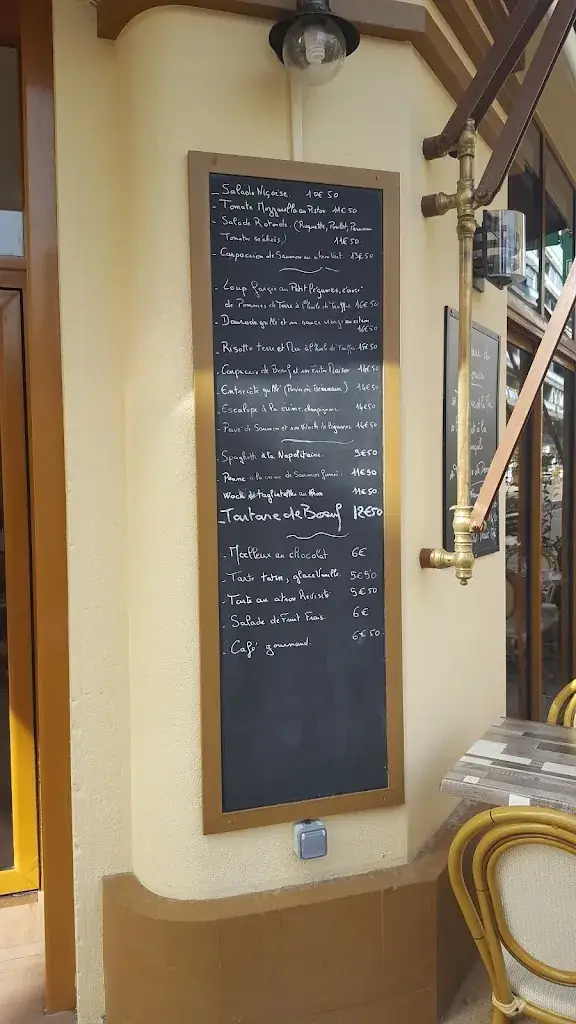 - Salade Niçoise. 10€50
- Tomate Mozzarella au Pistou 11€50
- Salade Rotonde. (Roquette, Poulet, Parmesan
Tomates séchées,) 11€50
- Carpaccion de Saumon au citron Vert. 13€50
- Loup farçie au Petit légumes, écrasé
de Pommes de Terre à l'huile de Truffes. 16€50
- Daurade grillé et sa sauce vierge au citron
16€50
- Risotto terre et Mer à l'huile de Truffes 15€50
- Carpaccio de Bœuf et ses Frites Maison 14€50
- Entrecôte grillé (Poivre ou Béarnaise) 16€50
- Escalope à la crème champignons 14€50
- Pavé de Saumon et son Wock de légumes 14€50
- Spaghetti à la Napolitaine. 9€50
- Penne à la crème de Saumon fumé. 11€90
- Wock de tagliatelle au thon 11€50
- Tartare de Boeuf 12€50
- Moelleux au chocolat 6€
- Tarte tatin, glace Vanille. 5€50
- Tarte au citron Revisité 5€50
- Salade de Fruit Frais. 6€
- Café gourmand. 6€50